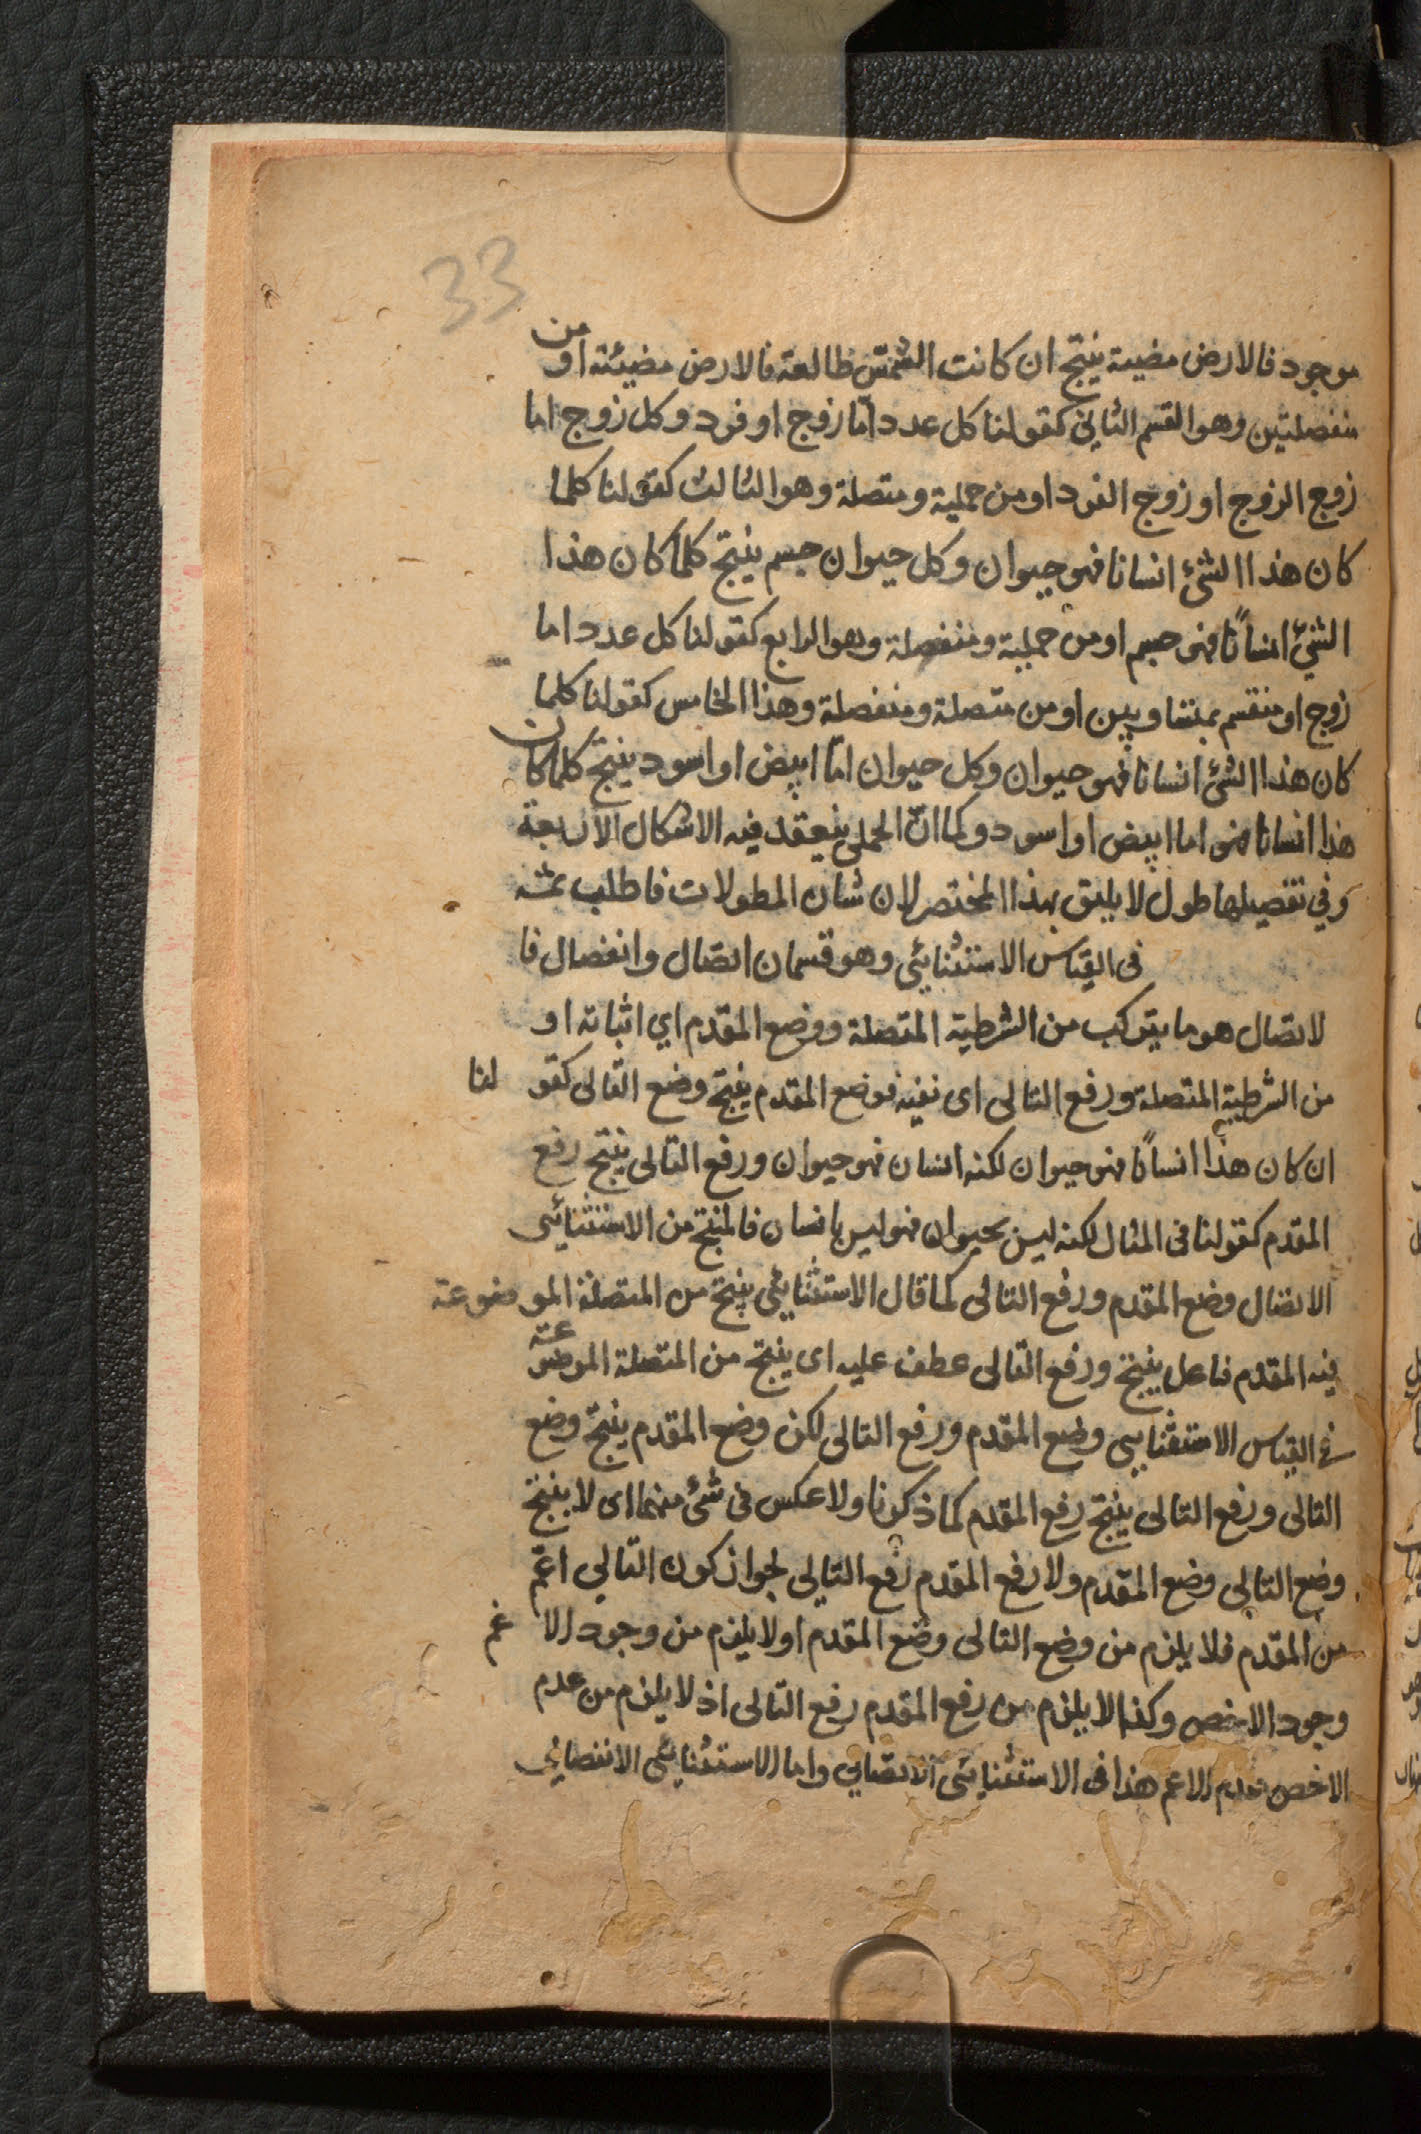 33
موجود فالارض مضيىة ينتج ان كانت الشمس طالعة فالارض مضيئة او من
منفصلتين وهو القسم الثانى كقولنا كل عدد اما زوج او فرد وكل زوج اما
زوج الزوج او زوج الفرد او من حملية ومتصلة وهو الثالث كقولنا كلما
كان هذا الشئ انسانا فهو حيوان وكل حيوان جسم ينتج كلما كان هذا
الشئ انسانًا فهو جسم او من حملية ومنفصلة وهو الرابع كقولنا كل عدد اما
زوج او منقسم بمتساويين او من متصلة ومنفصلة وهذا الخامس كقولنا كلما
كان هذا الشئ انسانا فهو حيوان وكل حيوان امّا ابيض او اسود ينتج كلما كان
هذا انسانا فهو اما ابيض او اسود وكما انّ الحملى ينعقد فيه الاشكال الاربعة
وفي تفصيلها طول لا يليق بهذا المختصر لان شان المطولات فاطلب ثمه
فى القياس الاستثنائي وهو قسمان اتصال وانفصال فا
لاتصال هو ما يتركب من الشرطية المتصلة ووضع المقدم اي اثباته او
من الشرطية المتصلة ورفع التالى اى نفيه فوضع المقدم ينتج وضع التالى كقو لنا
ان كان هذا انسانًا فهو حيوان لكنه انسان فهو حيوان ورفع التالى ينتج رفع
المقدم كقولنا فى المثال لكنه ليس بحيوان فهو ليس بانسان فالمنتج من الاستثنائى
الاتصال وضع المقدم ورفع التالى كما قال الاستثنائي ينتج من المتصلة الموضوعة
فيه المقدم فاعل ينتج ورفع التالى عطف عليه اى ينتج من المتصلة الموضوعة
فى القياس الاستثنايى وضع المقدم ورفع التالى لكن وضع المقدم ينتج وضع
التالى ورفع التالى ينتج رفع المقدم كما ذكرنا ولا عكس فى شئ منهما اى لا ينتج
وضع التالى وضع المقدم ولا رفع المقدم رفع التالي لجواز كون التالي اعم
من المقدم فلا يلزم من وضع التالى وضع المقدم او لا يلزم من وجود الا عم
وجود الاخص وكذا لا يلزم من رفع المقدم رفع التالى اذ لا يلزم من عدم
الاخص عدم الاعم هذا فى الاستثنائى الاتصالي واما الاستثنائى الانفصالي